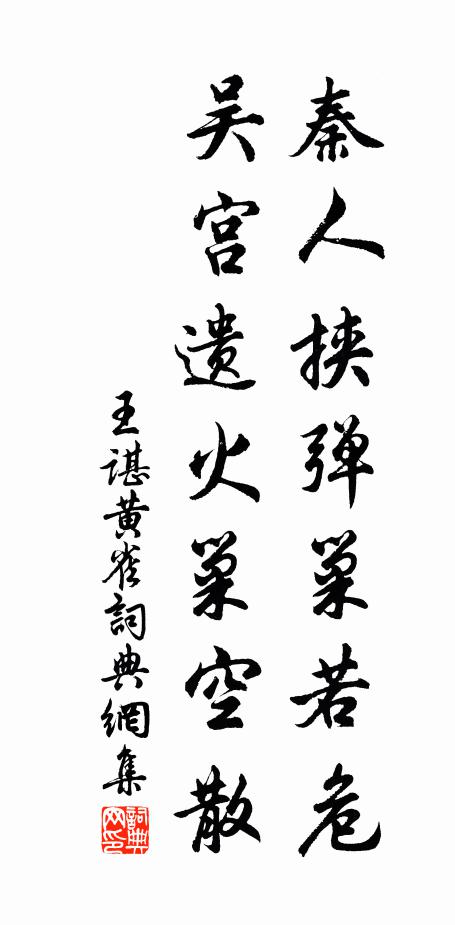 秦人挟弹巢若危
吴宫遗火巢空散
王谌黄雀詞典網集
詞典网印